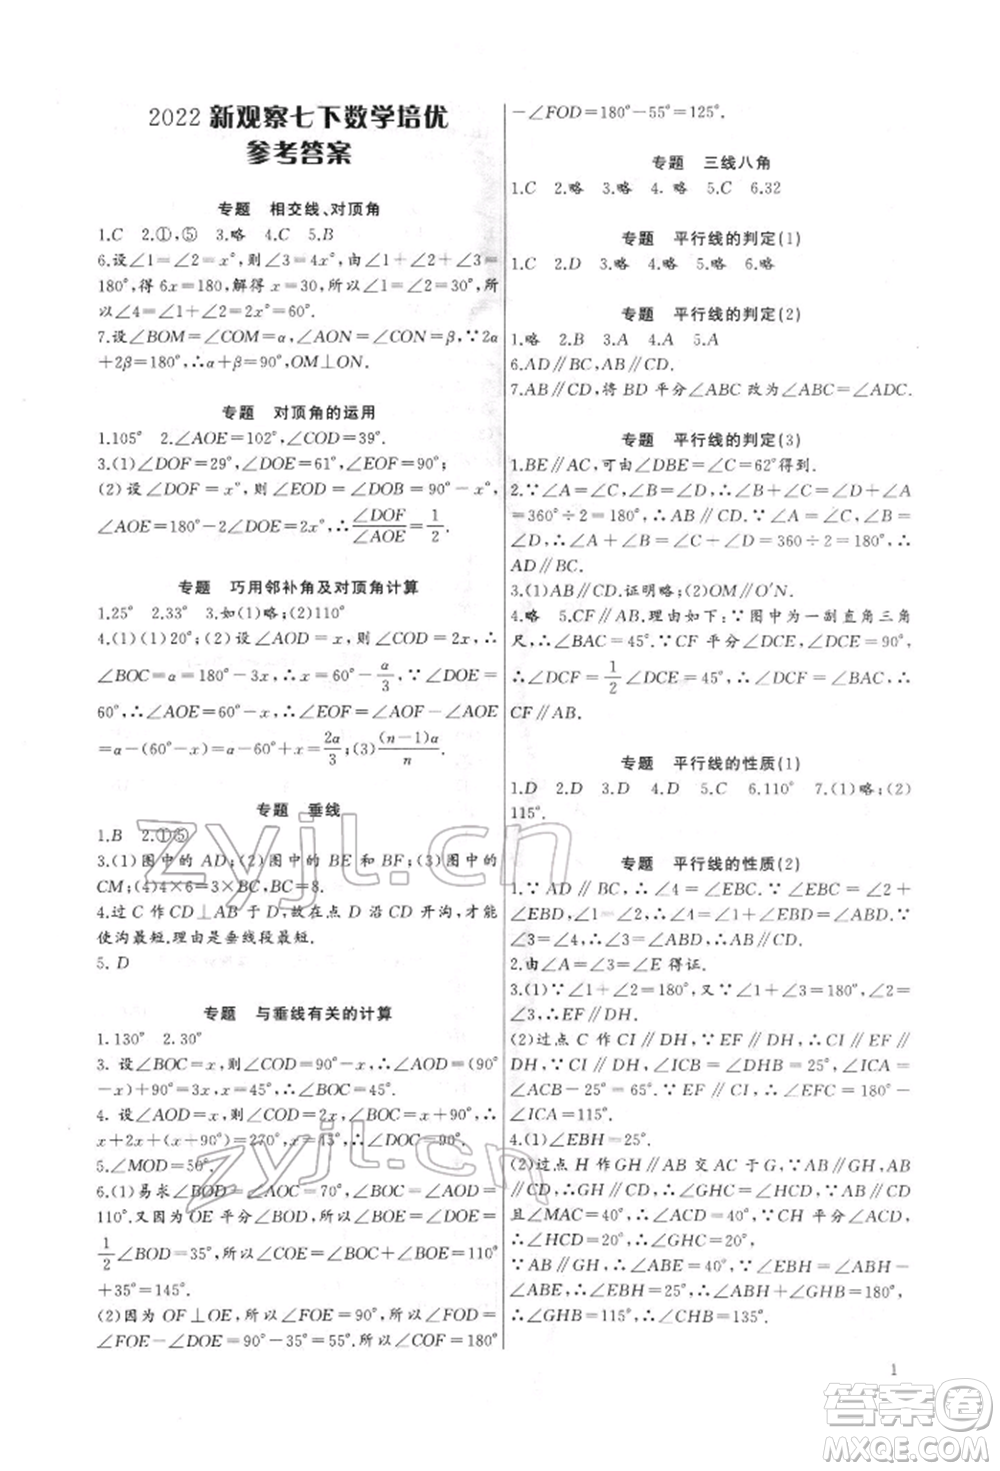 2022 新观察七下数学培优
参考答案
专题 相交线、对顶角
1.C 2.①,⑤ 3.略 4.C 5.B
6.设∠1=∠2=x°,则∠3=4x°,由∠1+∠2+∠3=
180°,得 6x=180,解得 x=30,所以∠1=∠2=30°,所
以∠4=∠1+∠2=2x°=60°.
7.设∠BOM=∠COM=α,∠AON=∠CON=β,∵2α
+2β=180°,∴α+β=90°,OM⊥ON.
专题 对顶角的运用
1.105° 2.∠AOE=102°,∠COD=39°.
3.(1)∠DOF=29°,∠DOE=61°,∠EOF=90°;
(2)设∠DOF=x°,则∠EOD=∠DOB=90°-x°,
∠AOE=180°-2∠DOE=2x°,∴∠DOF/∠AOE=1/2.
专题 巧用邻补角及对顶角计算
1.25° 2.33° 3.如(1)略;(2)110°
4.(1)(1)20°;(2)设∠AOD=x,则∠COD=2x,∴
∠BOC=α=180°-3x,∴x=60°-α/3,∵∠DOE=
60°,∴∠AOE=60°-x,∴∠EOF=∠AOF-∠AOE
=α-(60°-x)=α-60°+x=2α/3;(3)(n-1)α/n.
专题 垂线
1.B 2.①⑤
3.(1)图中的 AD;(2)图中的 BE 和 BF;(3)图中的
CM;(4)4×6=3×BC,BC=8.
4.过 C 作 CD⊥AB 于 D,故在点 D 沿 CD 开沟,才能
使沟最短.理由是垂线段最短.
5. D
专题 与垂线有关的计算
1.130° 2.30°
3. 设∠BOC=x,则∠COD=90°-x,∴∠AOD=(90°
-x)+90°=3x,∴x=45°,∴∠BOC=45°.
4. 设∠AOD=x,则∠COD=2x,∠BOC=x+90°,∴
x+2x+(x+90°)=270°,∴x=45°,∴∠DOC=90°.
5.∠MOD=50°.
6.(1)易求∠BOD=∠AOC=70°,∠BOC=∠AOD=
110°.又因为 OE 平分∠BOD,所以∠BOE=∠DOE=
1/2∠BOD=35°,所以∠COE=∠BOC+∠BOE=110°
+35°=145°.
(2)因为 OF⊥OE,所以∠FOE=90°,所以∠FOD=
∠FOE-∠DOE=90°-35°=55°,所以∠COF=180°
-∠FOD=180°-55°=125°.
专题 三线八角
1.C 2.略 3.略 4.略 5.C 6.32
专题 平行线的判定(1)
1.C 2.D 3.略 4.略 5.略 6.略
专题 平行线的判定(2)
1.略 2.B 3.A 4.A 5.A
6.AD∥BC,AB∥CD.
7.AB∥CD,将 BD 平分∠ABC 改为∠ABC=∠ADC.
专题 平行线的判定(3)
1.BE∥AC,可由∠DBE=∠C=62°得到.
2.∵∠A=∠C,∠B=∠D,∴∠B+∠C=∠D+∠A
=360°÷2=180°,∴AB∥CD.又∵∠A=∠C,∠B=
∠D,∴∠A+∠B=∠C+∠D=360÷2=180°,∴
AD∥BC.
3.(1)AB∥CD.证明略;(2)OM∥O′N.
4.略 5.CF∥AB.理由如下:∵图中为一副直角三角
尺,∴∠BAC=45°.∵CF 平分∠DCE,∠DCE=90°,
∴∠DCF=1/2∠DCE=45°,∴∠DCF=∠BAC,∴
CF∥AB.
专题 平行线的性质(1)
1.D 2.D 3.D 4.D 5.C 6.110° 7.(1)略;(2)
115°.
专题 平行线的性质(2)
1.∵AD∥BC,∴∠4=∠EBD,∵∠4=∠2+
∠EBD,∠1=∠2,∴∠4=∠1+∠EBD=∠ABD.∵
∠3=∠4,∴∠3=∠ABD,∴AB∥CD.
2.由∠A=∠3=∠E 得证.
3.(1)∵∠1+∠2=180°,又∵∠1+∠3=180°,∴
∠2=∠3,∴EF∥DH.
(2)过点 C 作 CI∥DH,∵EF∥DH,∴CI∥EF∥
DH,∴∠ICB=∠DHB=25°,∴∠ICA=
∠ACB-25°=65°.∵EF∥CI,∴∠EFC=180°-
∠ICA=115°.
4.(1)∠EBH=25°.
(2)过点 H 作 GH∥MN 交 AC 于 G,∵MN∥EF,
∴GH∥CD∥MN,∴∠GHC=∠HCD,∵MN∥CD
且∠MAC=40°,∴∠ACD=40°,∵CH 平分∠ACD,
∴∠HCD=20°,∴∠GHC=20°,∵∠EBH=25°,
∵AH∥BC,∴∠EBH=∠ABH+∠GHB=180°,
∴∠GHB=115°,∴∠CHB=135°.
1
zyjl.cn
zyjl.cn
答案圈
MXQE.COM